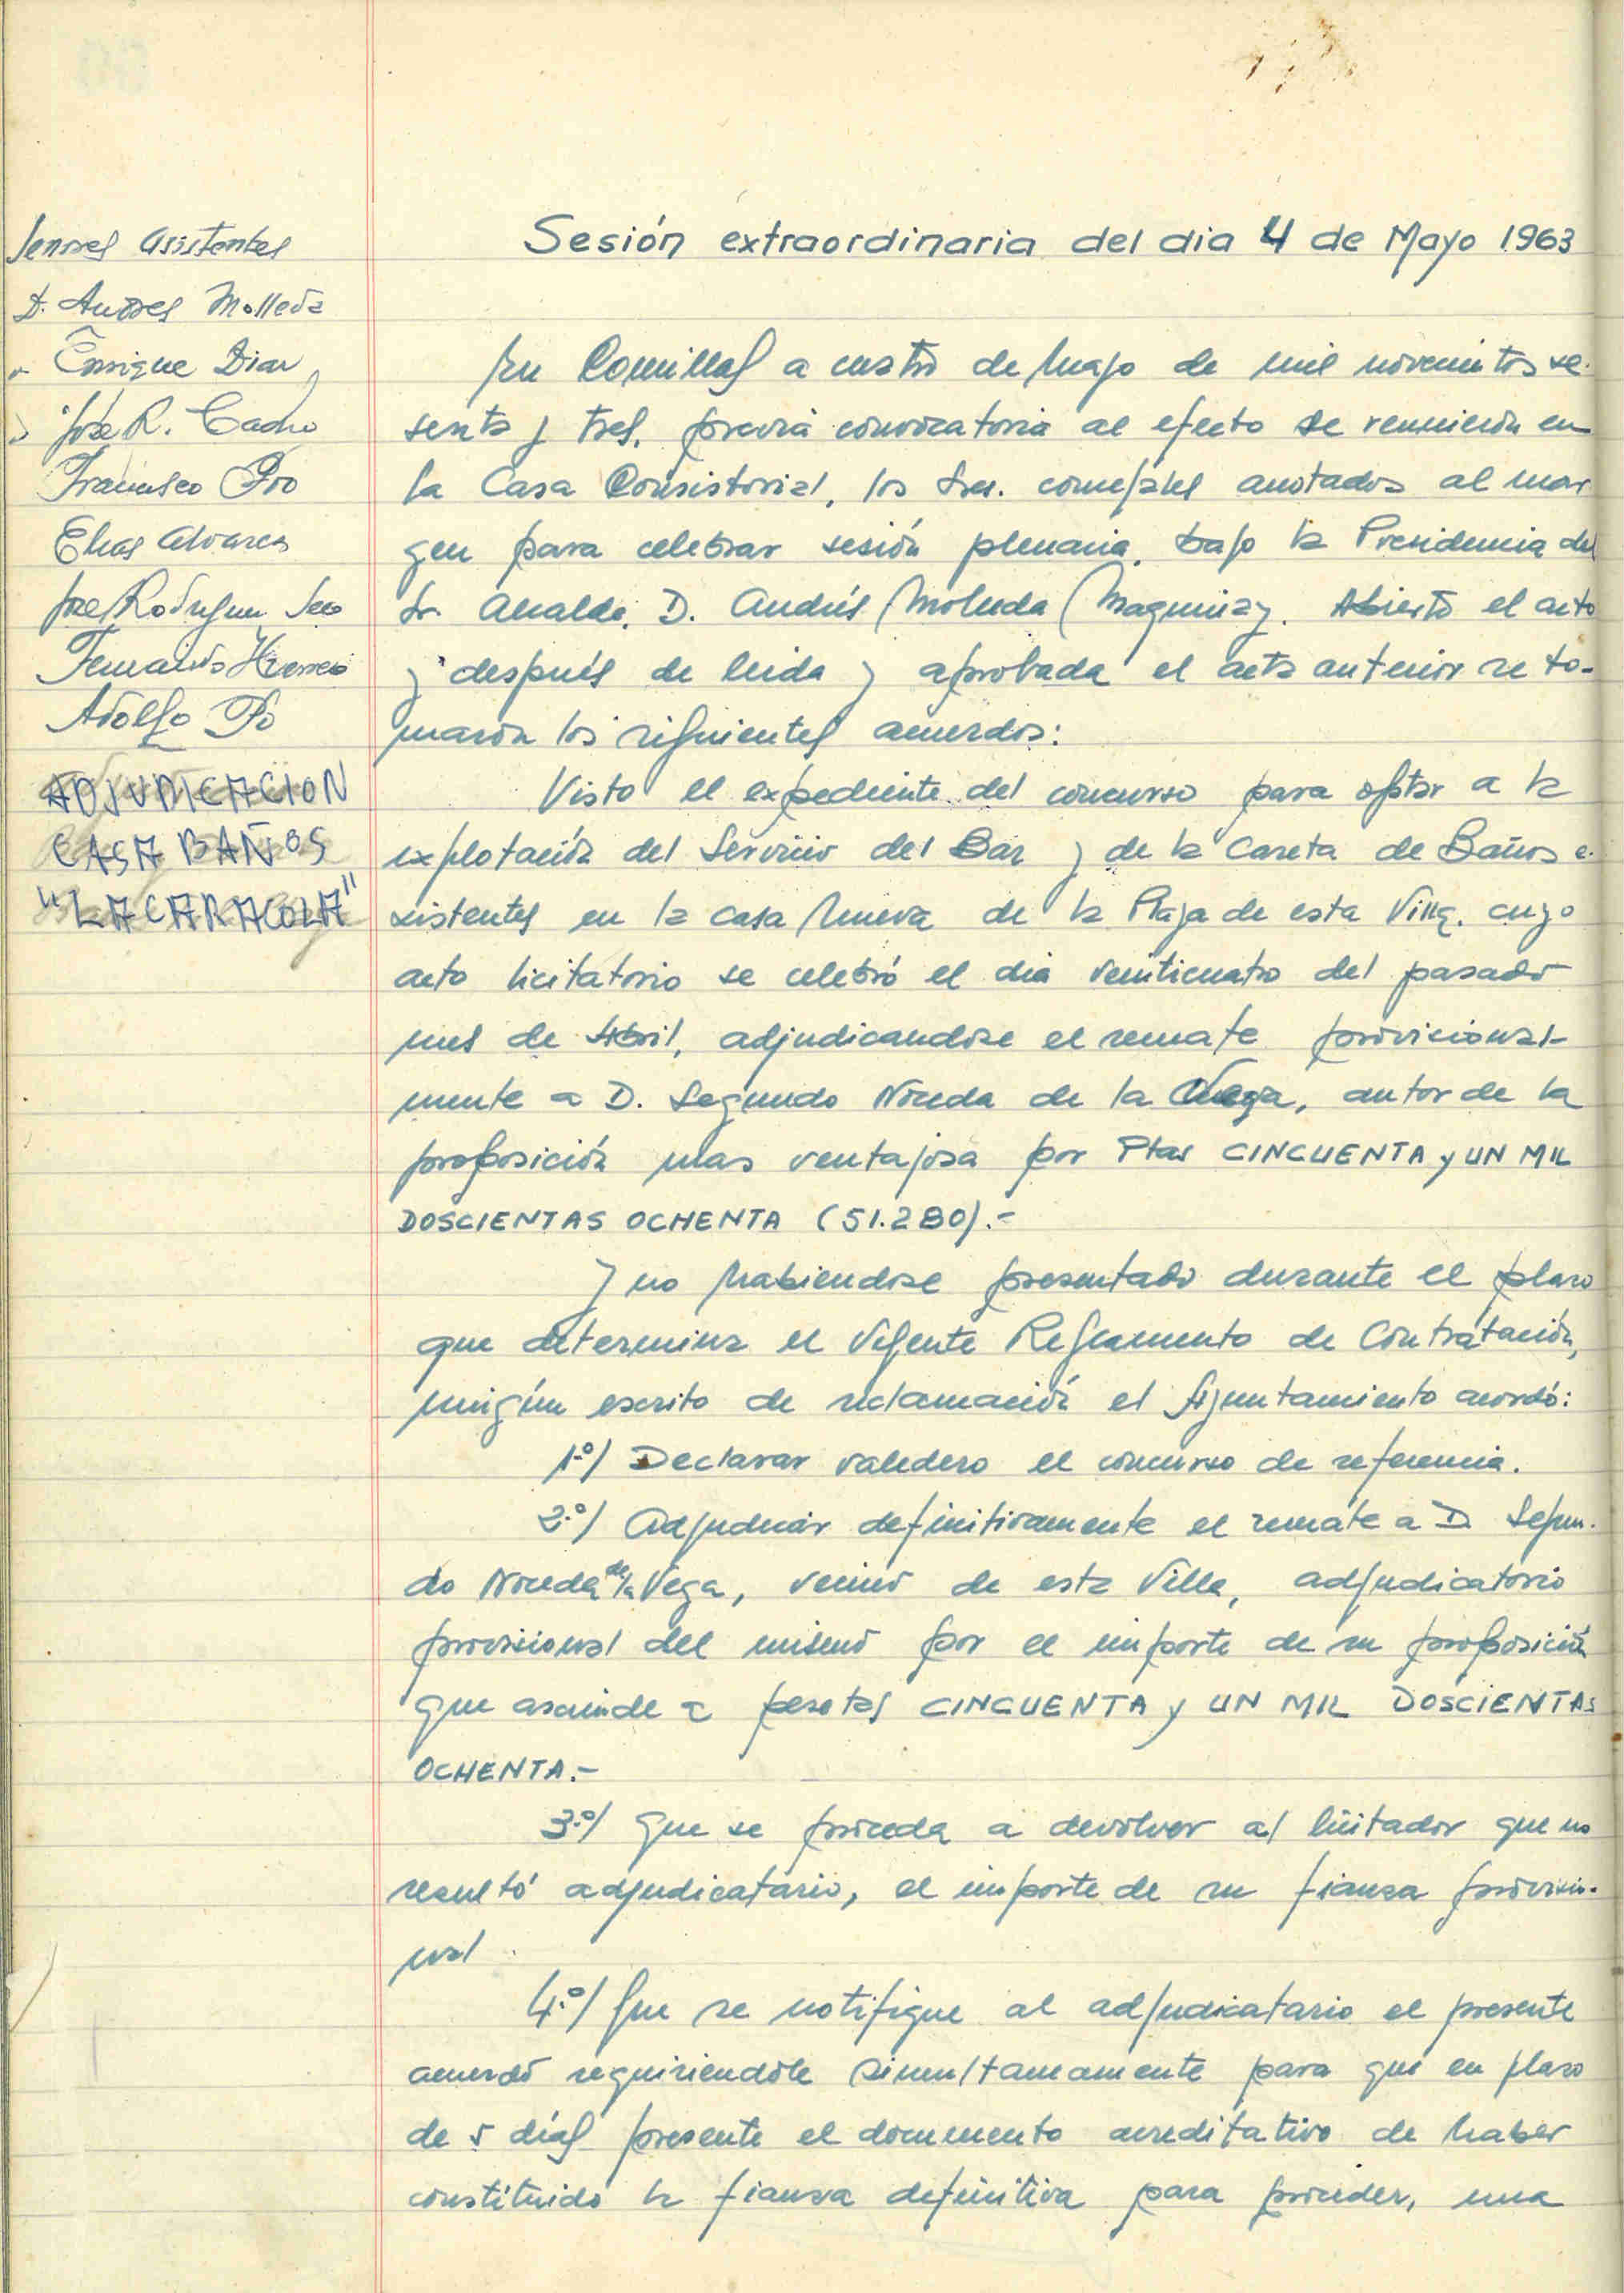 Senores Asistentes
D. Andres Molleda
" Enrique Diaz
" José R. Cacho
Francisco Pro
Elias Alvarez
Jose Rodriguez Seco
Fernando Herrero
Adolfo Po
ADJUDICACION
CASA BAÑOS
"LA CARACOLA"
Sesión extraordinaria del dia 4 de Mayo 1963
En Comillas a cuatro de Mayo de mil novecientos se-
senta y tres, previa convocatoria al efecto se reunieron en
la Casa Consistorial, los Sres. concejales anotados al mar
gen para celebrar sesión plenaria, bajo la Presidencia del
Sr. Alcalde, D. Andrés Molleda. Abierto el acto
y después de leida y aprobada el acta anterior se to-
maron los siguientes acuerdos:
Visto el expediente del concurso para optar a la
explotación del Servicio del Bar y de la Caseta de Baños e-
xistentes en la casa Nueva de la Playa de esta Villa, cuyo
acto licitatorio se celebró el dia veinticuatro del pasado
mes de Abril, adjudicandose el remate provisional-
mente a D. Segundo Noceda de la Vega, autor de la
proposición mas ventajosa por Ptas CINCUENTA y UN MIL
DOSCIENTAS OCHENTA (51.280).-
Y no habiendose presentado durante el plazo
que determina el Vigente Reglamento de Contratación,
ningún escrito de reclamación el Ayuntamiento acordó:
1.º) Declarar valedero el concurso de referencia.
2.º) Adjudicar definitivamente el remate a D. Segun-
do Noceda de la Vega, vecino de esta Villa, adjudicatorio
provisional del mismo por el importe de su proposición
que asciende a pesetas CINCUENTA y UN MIL DOSCIENTAS
OCHENTA.-
3.º) Que se proceda a devolver al licitador que no
resultó adjudicatario, el importe de su fianza provisio-
nal.
4.º) Que se notifique al adjudicatario el presente
acuerdo requiriendole simultaneamente para que en plazo
de 5 días presente el documento acreditativo de haber
constituido la fianza definitiva para proceder, una